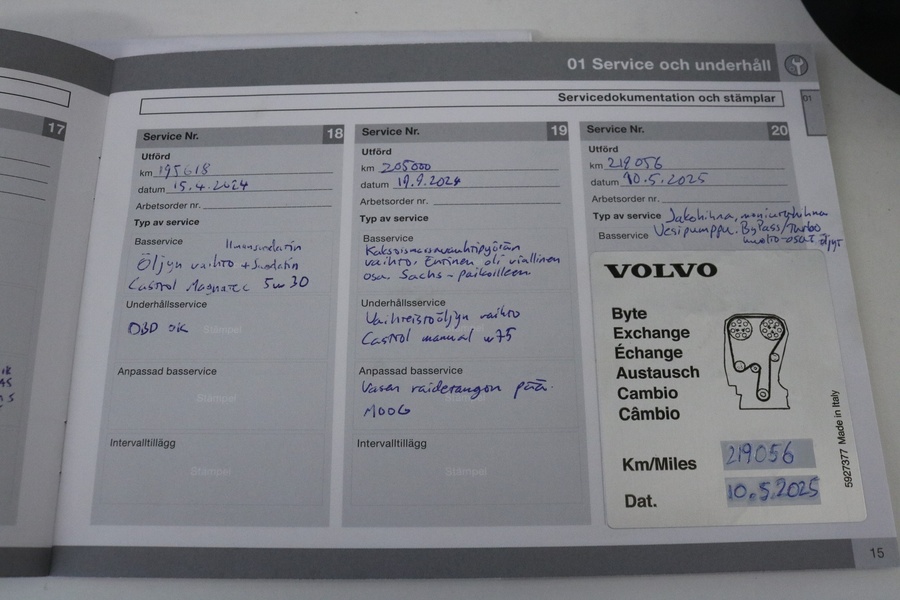 01 Service och underhåll
01
Servicedokumentation och stämplar
17
Service Nr. 18
Utförd
km 195618
datum 15.4.2024
Arbetsorder nr.
Typ av service
Basservice Ilmansuodatin
Öljyn vaihto + Suodatin
Castrol Magnatec 5w30
Underhållsservice
OBD OK
Stämpel
Anpassad basservice
Stämpel
Intervalltillägg
Stämpel
Service Nr. 19
Utförd
km 205000
datum 19.9.2024
Arbetsorder nr.
Typ av service
Basservice
Kaksoismassavauhtipyörän
vaihto. Entinen oli viallinen
osa. Sachs - paikoilleen
Underhållsservice
Vaihteistoöljyn vaihto
Castrol manual w75
Anpassad basservice
Vasen raidetangon pää.
MOOG
Intervalltillägg
Stämpel
Service Nr. 20
Utförd
km 219056
datum 10.5.2025
Arbetsorder nr.
Typ av service Jakohihna, moniurahihna
Basservice Vesipumppu. ByPass/Turbo
öljyt
VOLVO
Byte
Exchange
Échange
Austausch
Cambio
Câmbio
Km/Miles 219056
Dat. 10.5.2025
5927377 Made in Italy
15